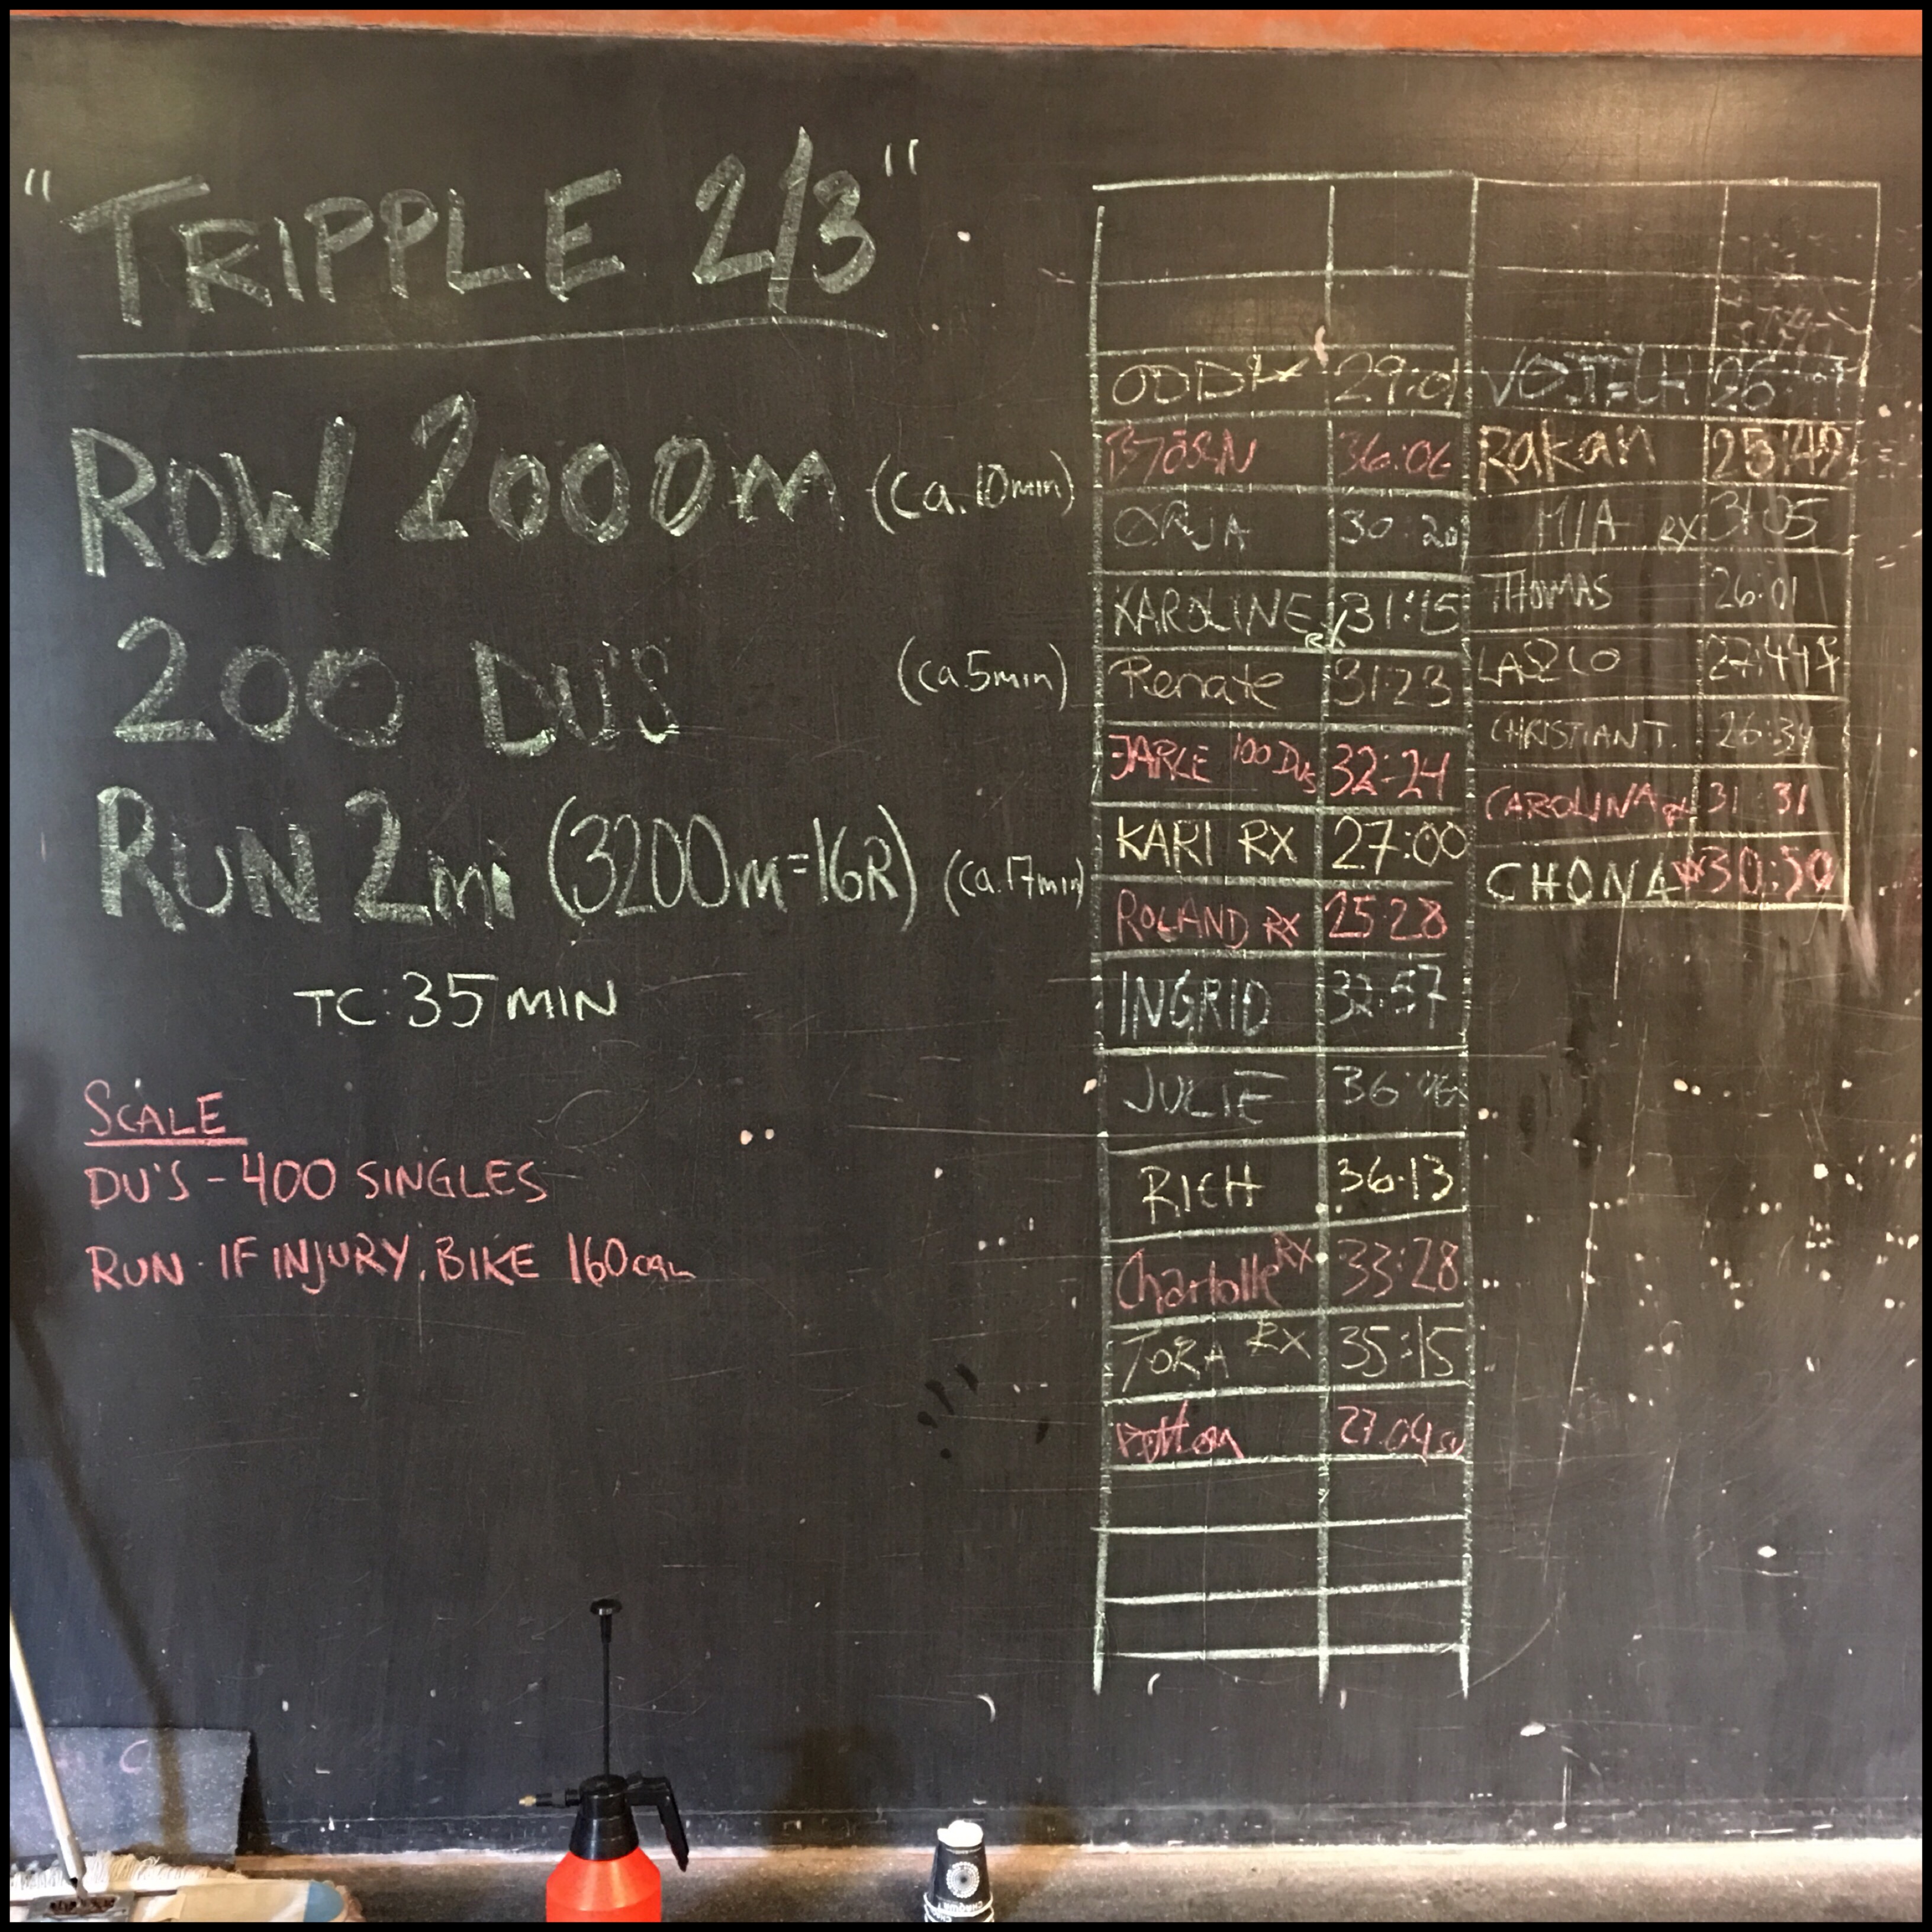 "TRIPPLE 2/3"
ROW 2000m (ca.10min)
200 DU'S (ca.5min)
RUN 2mi (3200m=16R) (ca.17min)
TC: 35 MIN
SCALE
DU'S - 400 SINGLES
RUN - IF INJURY, BIKE 160cal
ODD 29:01
BJÖRN 36:06
ØRJA 30:20
KAROLINE RX 31:15
Renate 31:23
JARLE 100 DUs 32:24
KARI RX 27:00
ROLAND RX 25:28
INGRID 32:57
JULIE 36:06
RICH 36:13
Charlotte RX 33:28
TORA RX 35:15
27.04
VOJTECH 26
Rakan 25:49
MIA RX 31:05
THOMAS 26:01
LASZLO 27:44
CHRISTIAN T. 26:34
CAROLINA 31 31
CHONA 30:50